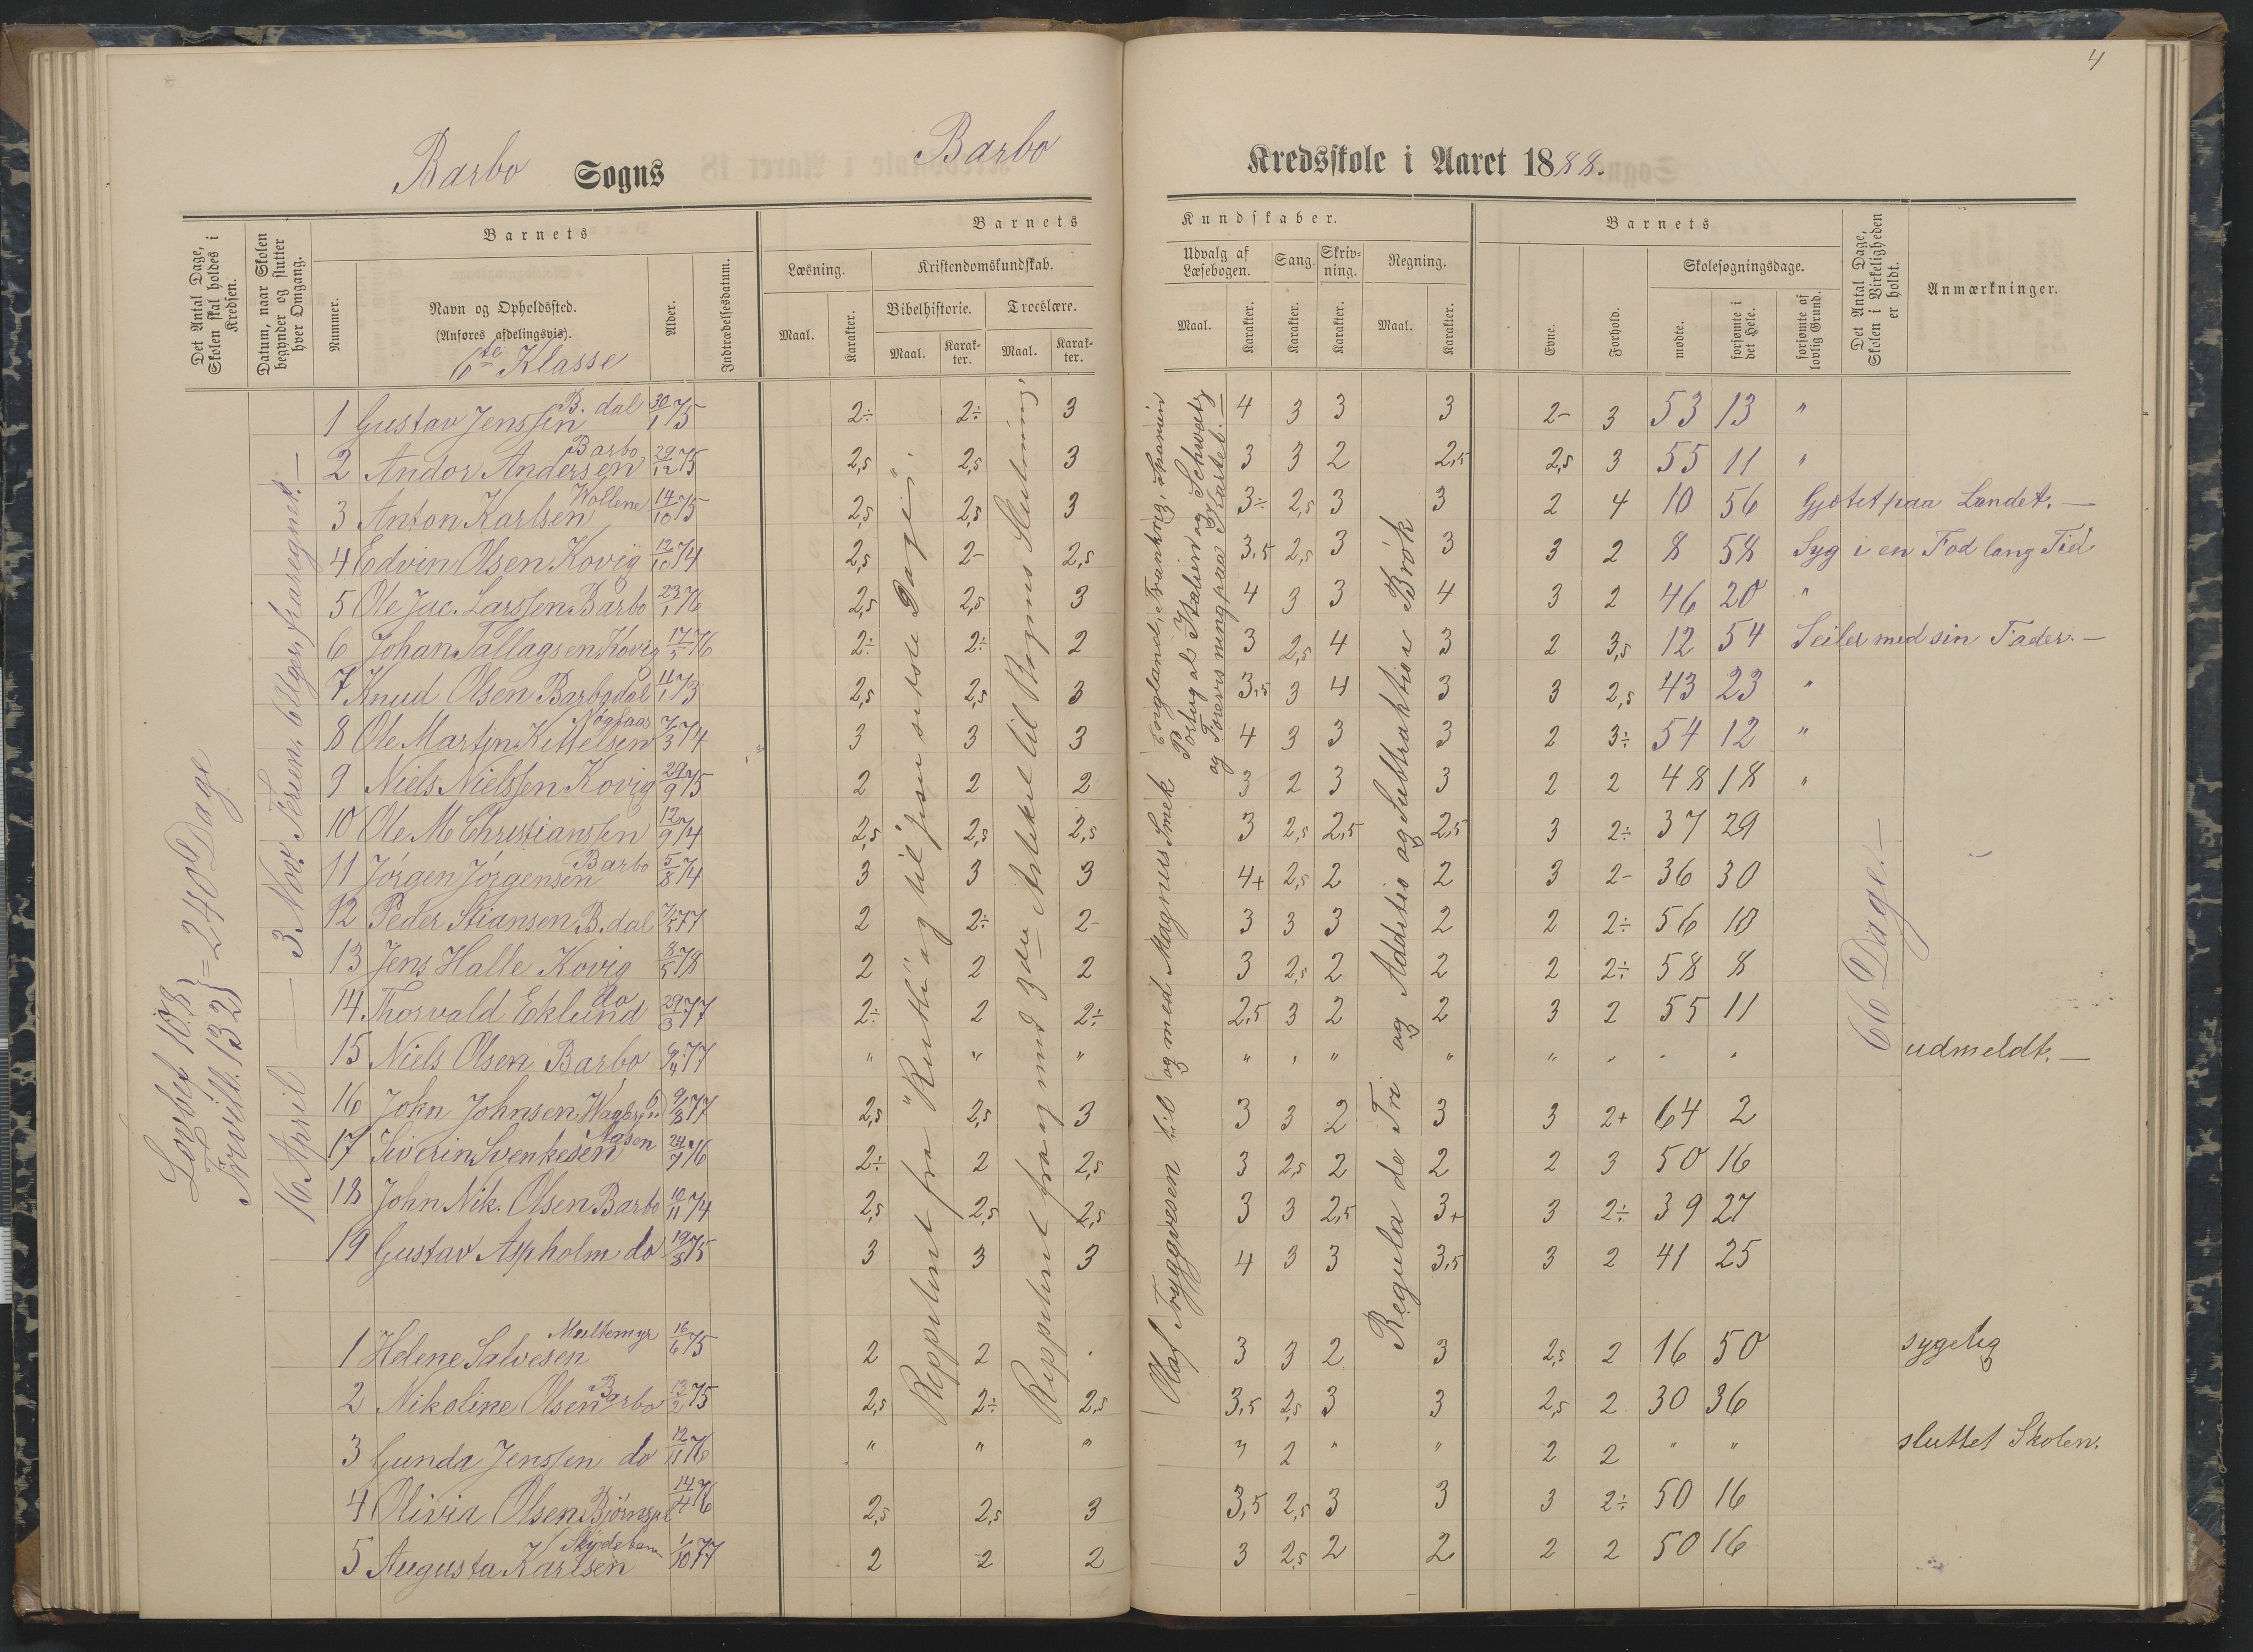 4
Barbo Sogns Barbo Kredsskole i Aaret 1888.
Det Antal Dage, Skolen skal holdes i Kredsen.
Datum, naar Skolen begynder og slutter hver Omgang.
Barnets
Nummer.
Navn og Opholdssted.
(Anføres afdelingsvis).
6te Klasse
Alder.
Indtrædelsesdatum.
Barnets Kundskaber.
Læsning. Kristendomskundskab. Udvalg af Læsebogen. Sang. Skrivning. Regning.
Bibelhistorie. Troeslære.
Maal. Karakter. Maal. Karakter. Maal. Karakter. Maal. Karakter. Karakter. Karakter. Maal. Karakter.
Barnets
Evne. Forhold. Skolesøgningsdage.
mødte. forsømte i det Hele. forsømte af lovlig Grund.
Det Antal Dage, Skolen i Virkeligheden er holdt.
Anmærkninger.
Lovbef 108
Frivill. 132 } = 240 Dage
16 April — 3 Nov. Ferien, 6 Uger, fraregnet. —
Reppetent fra "Ruth" og til Jesu sidste Dage".
Reppetent fra og med 3die Artikel til Bogens Slutning
Olaf Tryggvesen til og med Magnus Smek
England, Frankrig, Spanien
Portugal Italien og Schweitz
og Forevisning paa Kartet. —
Regula de Tri og Addition og Subtraktion Brøk
66 Dage. —
1 Gustav Jenssen B. dal 30/1 75 2÷ 2÷ 3 4 3 3 3 2- 3 53 13 "
2 Andor Andersen Barbo 29/12 75 2,5 2,5 3 3 3 2 2,5 2,5 3 55 11 "
3 Anton Karlsen Wollene 14/10 75 2,5 2,5 3 3÷ 2,5 3 3 2 4 10 56 Gjætet paa Landet. —
4 Edvin Olsen Kovig 12/10 74 2,5 2- 2,5 3,5 2,5 3 3 3 2 8 58 Syg i en Fod lang Tid
5 Ole Jac. Larssen Barbo 23/1 76 2,5 2,5 3 4 3 3 4 3 2 46 20 "
6 Johan Tallagsen Kovig 17/5 76 2÷ 2÷ 2 3 2,5 4 3 2 3,5 12 54 Seiler med sin Fader. —
7 Knud Olsen Barbodal 11/1 73 2,5 2,5 3 3,5 3 4 3 3 2,5 43 23 "
8 Ole Martin Kittelsen 7/3 74 3 3 3 4 3 3 3 2 3÷ 54 12 "
9 Niels Nielssen Kovig 29/9 75 2 2 2 3 2 3 3 2 2 48 18 "
10 Ole M Christianssen 12/9 74 2,5 2,5 2,5 3 2,5 2,5 2,5 3 2÷ 37 29
11 Jørgen Jørgensen Barbo 5/8 74 3 3 3 4+ 2,5 2 2 3 2- 36 30
12 Peder Stiansen B. dal 7/5 77 2 2÷ 2- 3 3 3 2 2 2÷ 56 10
13 Jens Halle Kovig 8/5 78 2 2 2 3 2,5 2 2 2 2÷ 58 8
14 Thorvald Eklund do 29/3 77 2÷ 2 2÷ 2,5 3 2 2 3 2 55 11
15 Niels Olsen Barbo 6/4 77 " " " " " " " " " " " udmeldt. —
16 John Johnsen 9/8 77 2,5 2,5 3 3 3 2 3 3 2+ 64 2
17 Siverin Svenkesen Aasen 24/7 76 2÷ 2 2,5 3 2,5 2 2 2 3 50 16
18 John Nik. Olsen Barbo 10/11 74 2,5 2,5 2,5 3 3 2,5 3+ 3 2÷ 39 27
19 Gustav Aspholm do 19/8 75 3 3 3 4 3 3 3,5 3 2 41 25
1 Helene Salvesen Multemyr 16/6 75 2 2 . 3 3 2 3 2,5 2 16 50 sygelig
2 Nikoline Olsen Barbo 13/2 75 2,5 2÷ 2,5 3,5 2,5 3 3 2,5 2 30 36
3 Gunda Jenssen do 12/11 76 " " " 3 2 " " 2 2 " " sluttet Skolen.
4 Olivia Olsen 14/4 76 2,5 2,5 3 3,5 2,5 3 3 3 2÷ 50 16
5 Augusta Karlsen 1/10 77 2 2 2 3 2,5 2 2 2 2 50 16